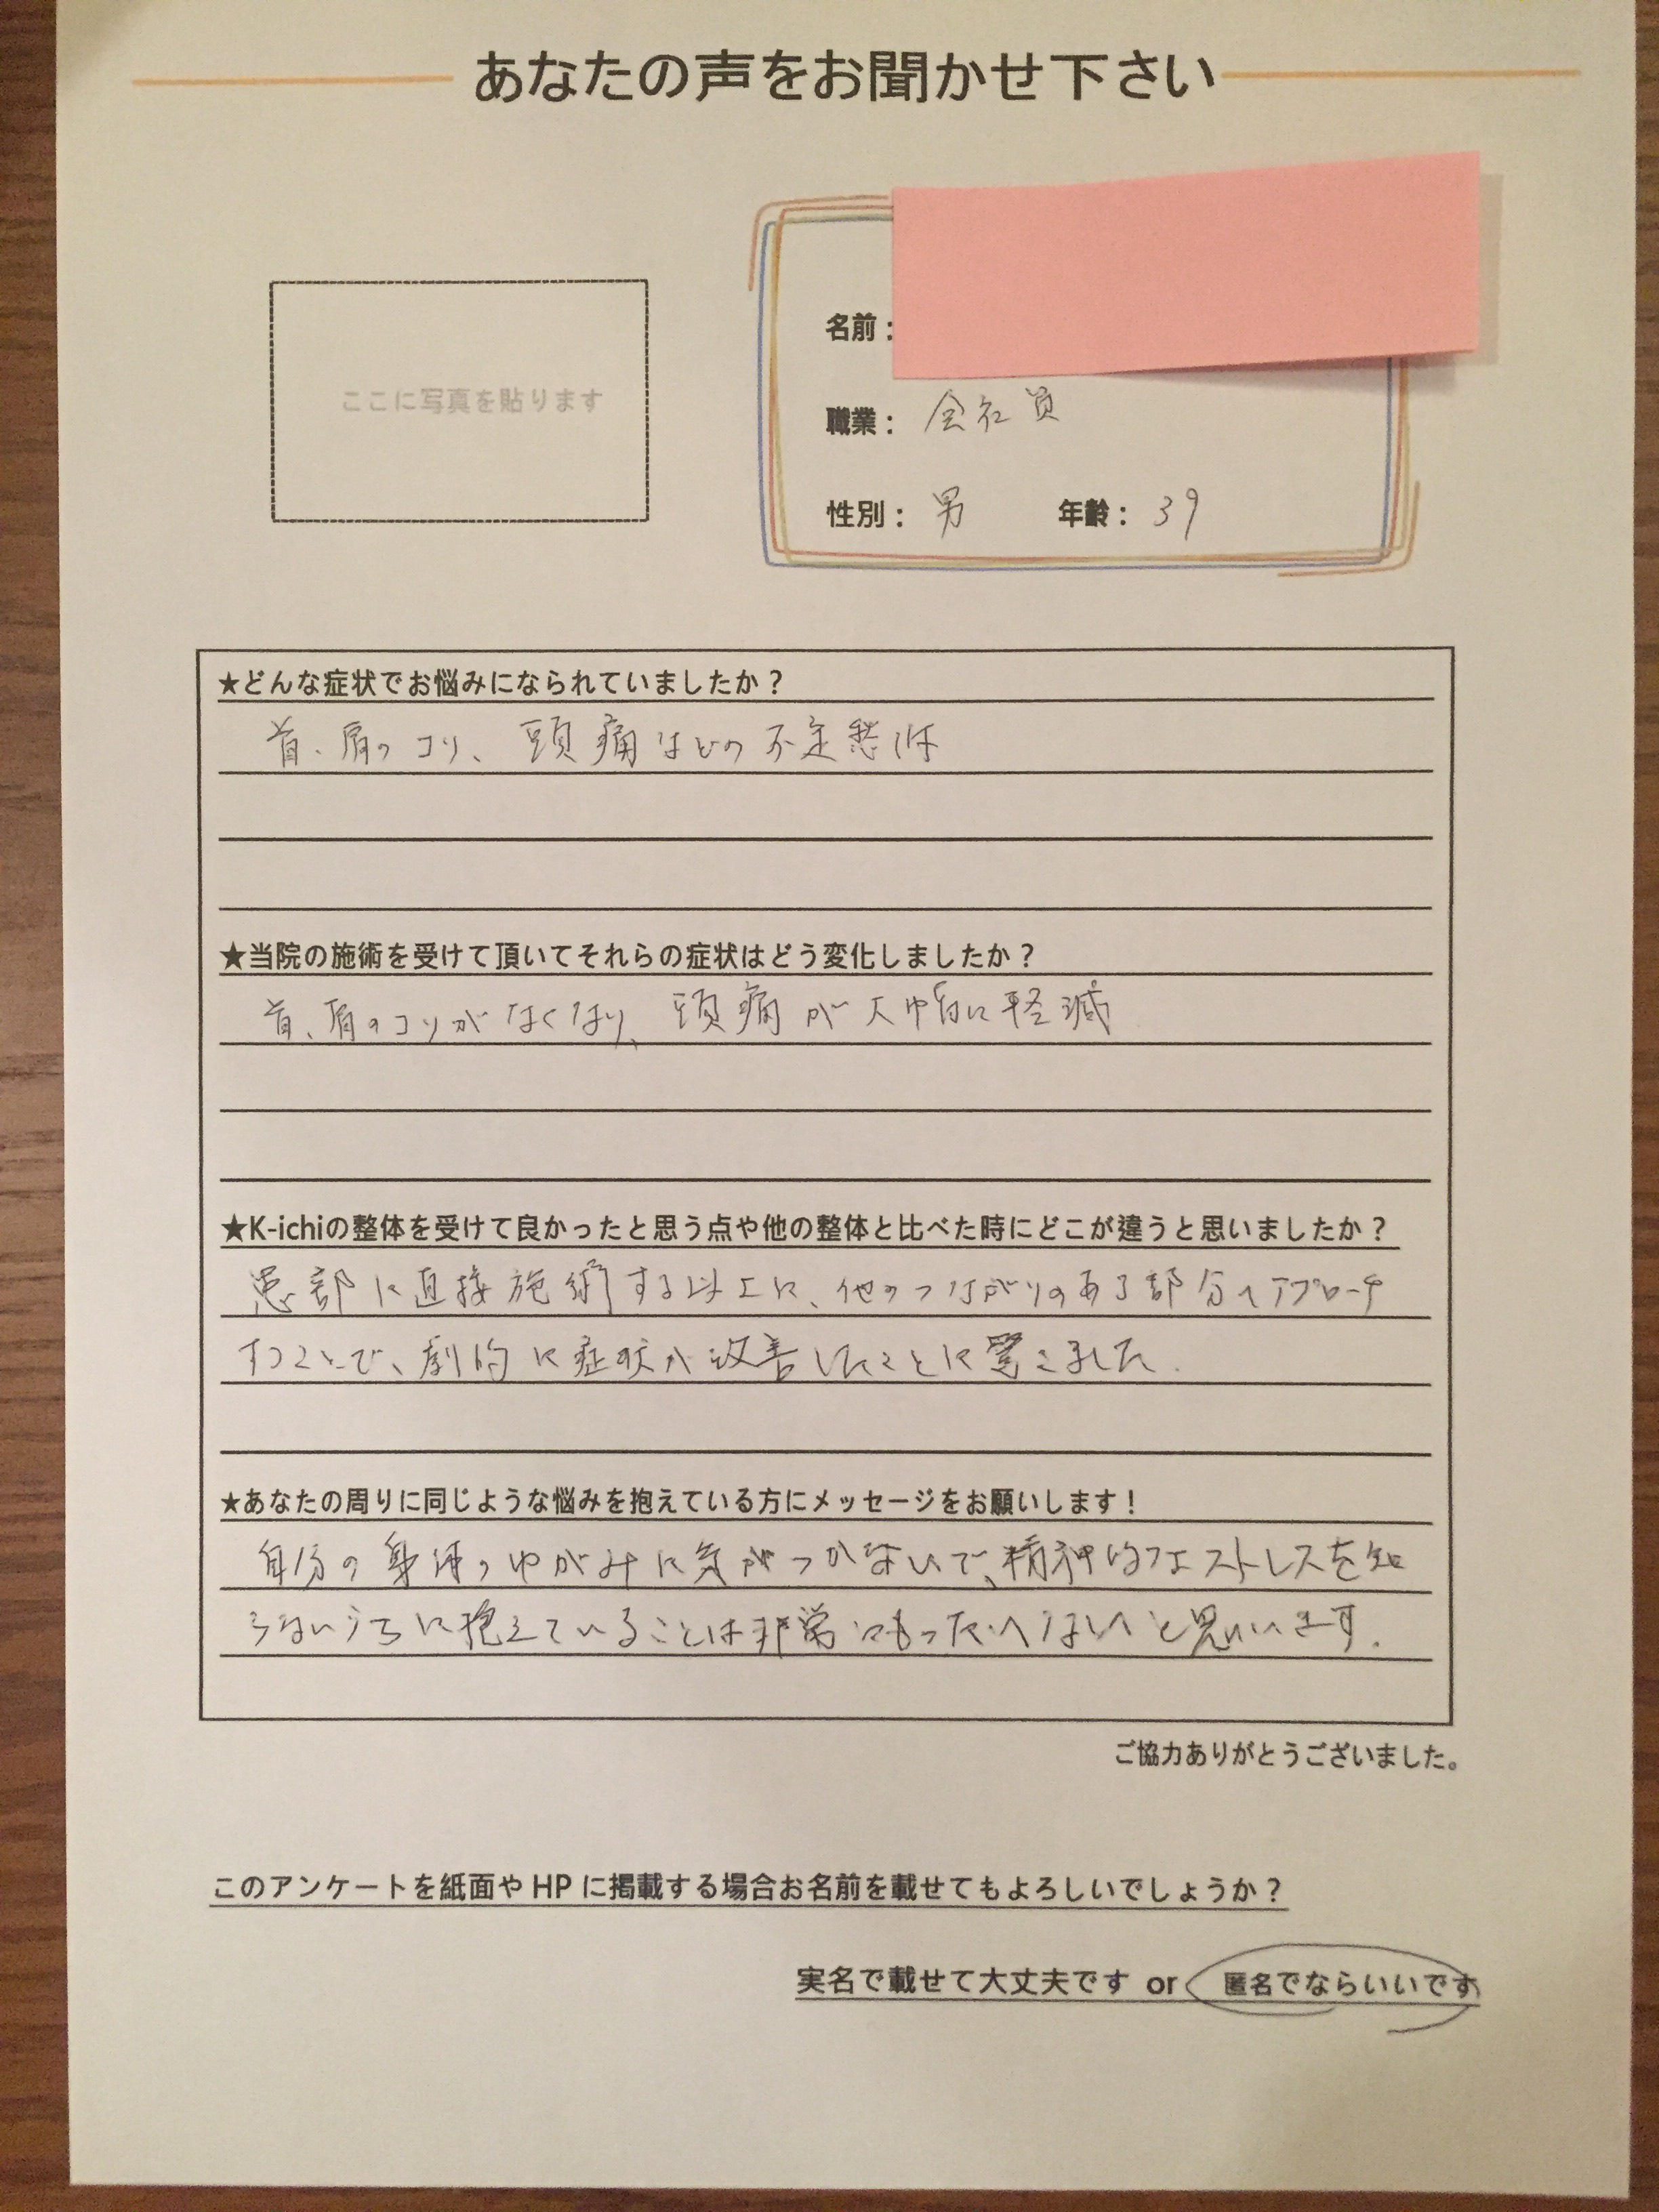 あなたの声をお聞かせ下さい
ここに写真を貼ります
名前：
職業： 会社員
性別： 男 年齢： 39
★どんな症状でお悩みになられていましたか？
首、肩のコリ、頭痛などの不定愁訴
★当院の施術を受けて頂いてそれらの症状はどう変化しましたか？
首、肩のコリがなくなり、頭痛が大幅に軽減
★K-ichiの整体を受けて良かったと思う点や他の整体と比べた時にどこが違うと思いましたか？
患部に直接施術する以上に、他のつながりのある部分へアプローチ
することで、劇的に症状が改善したことに驚きました.
★あなたの周りに同じような悩みを抱えている方にメッセージをお願いします！
自分の身体のゆがみに気がつかないで、精神的なストレスを知
らないうちに抱えていることは非常にもったいないと思います.
ご協力ありがとうございました。
このアンケートを紙面や HP に掲載する場合お名前を載せてもよろしいでしょうか？
実名で載せて大丈夫です or 匿名でならいいです